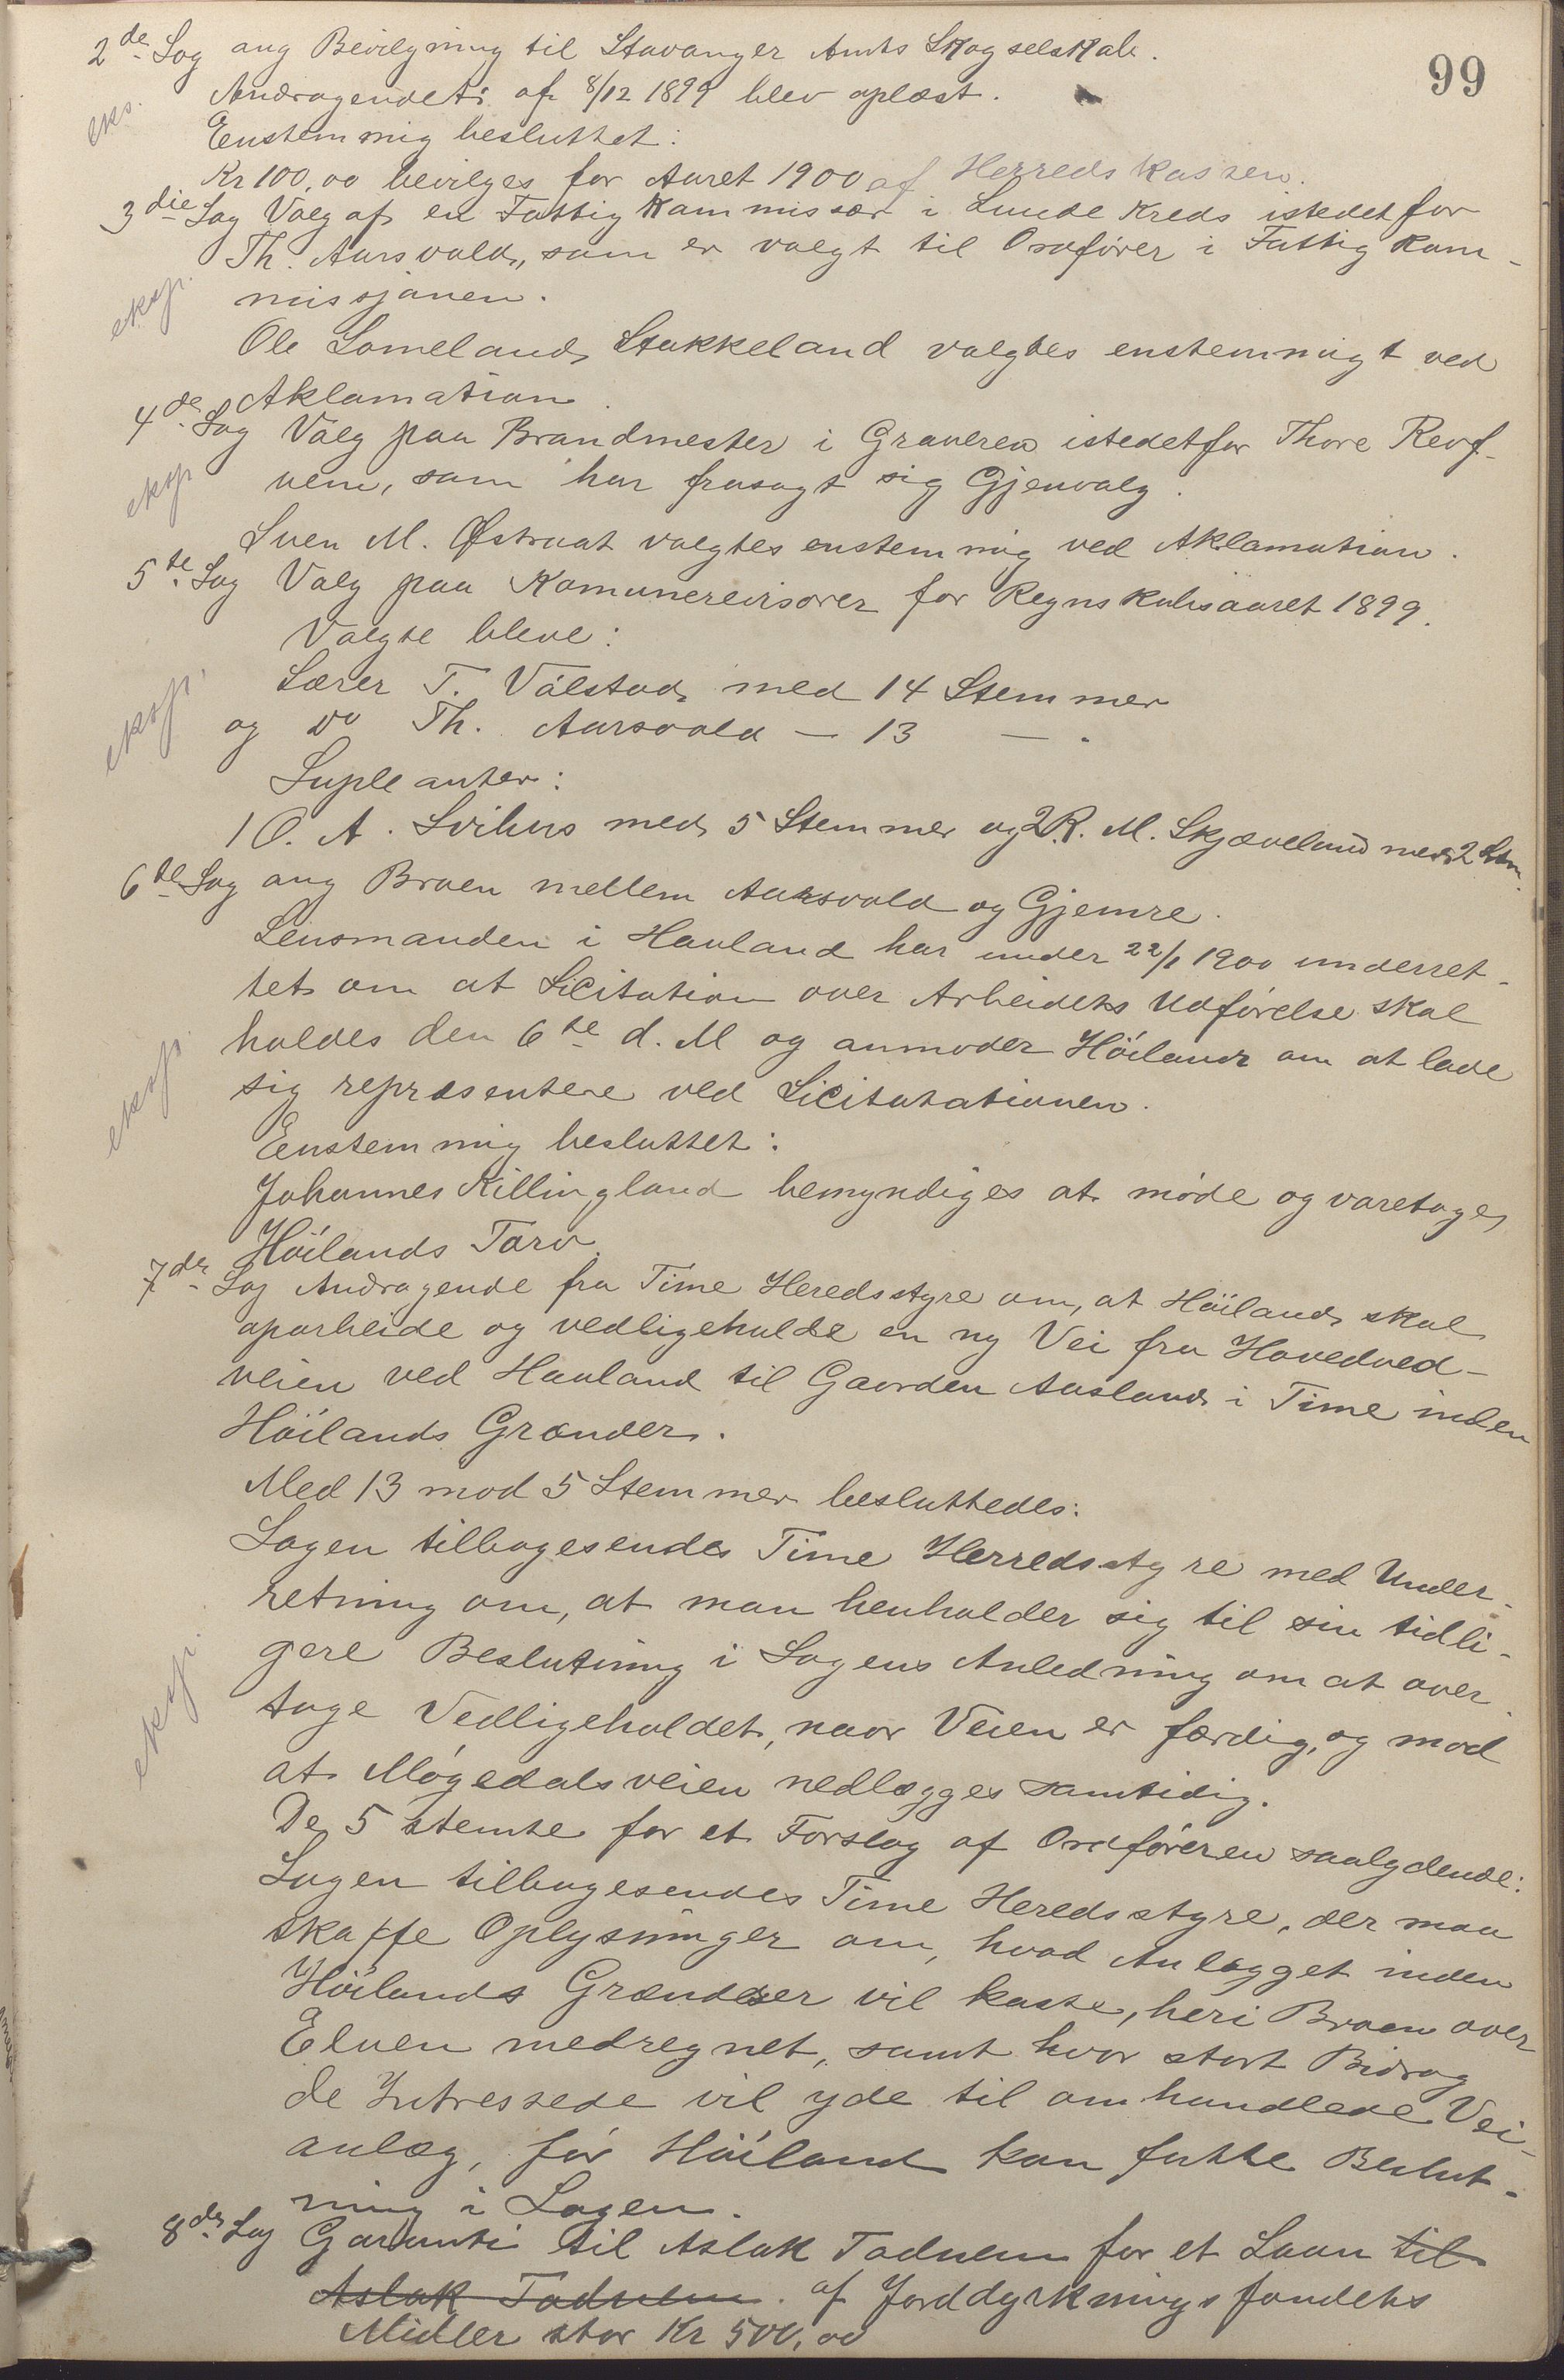 99
2de Sag ang Bevilgning til Stavanger Amts Skogselskab.
eks.
Andragendet af 8/12 1899 blev oplæst.
Enstemmig besluttet:
Kr 100,00 bevilges for Aaret 1900 af Herredskassen.
3die Sag Valg af en Fattigkommissær i Lunde Kreds istedetfor
Th. Aarsvold, som er valgt til Ordfører i Fattigkom-
eksp.
missjonen.
Ole Lomeland, Stokkeland valgtes enstemmigt ved
Aklamation.
4de Sag Valg paa Brandmester i Graveren istedetfor Thore Revf-
eksp
vem, som har frasagt sig Gjenvalg.
Sven M. Østraat valgtes enstemmig ved Aklamation.
5te Sag Valg paa Komunerevisorer for Regnskabsaaret 1899.
Valgte bleve:
Lærer T. Vålstad med 14 Stemmer
eksp.
og Do Th. Aarsvold — 13 — .
Supleanter:
1 O. A. Svihus med 5 Stemmer og 2 R. M. Skjæveland med 2 Stm.
6te Sag ang Broen mellem Aarsvold og Gjemre.
Lensmanden i Hauland har under 22/1 1900 underret-
tet om at Licitation over Arbeidets Udførelse skal
eksp.
holdes den 6te d. M og anmoder Höiland om at lade
sig repræsentere ved Licitatationen.
Enstemmig besluttet:
Johannes Killingland bemyndiges at møde og varetage
Höilands Tarv.
7de Sag Andragende fra Time Heredsstyre om, at Höiland skal
oparbeide og vedligeholde en ny Vei fra Hovedved-
veien ved Hauland til Gaarden Aasland i Time inden
Höilands Grænder.
Med 13 mod 5 Stemmer besluttedes:
Sagen tilbagesendes Time Herredsstyre med Under-
retning om, at man henholder sig til sin tidli-
eksp.
gere Beslutning i Sagens Anledning om at over
tage Vedligeholdet, naar Veien er færdig, og mod
at Møgedalsveien nedlægges samtidig.
De 5 stemte for et Forslag af Ordføreren saalydende:
Sagen tilbagesendes Time Heredsstyre, der maa
skaffe Oplysninger om, hvad Anlægget inden
Höilands Grændser vil kaste, heri Broen over
Elven medregnet, samt hvor stort Bidrag
de Intressede vil yde til omhandlede Vei-
anlæg, før Höiland kan fatte Beslut-
ning i Sagen.
8de Sag Garanti til Aslak Tadnem for et Laan til
Aslak Tadnem. af Jorddyrkningsfondets
Midler stor Kr 500,00